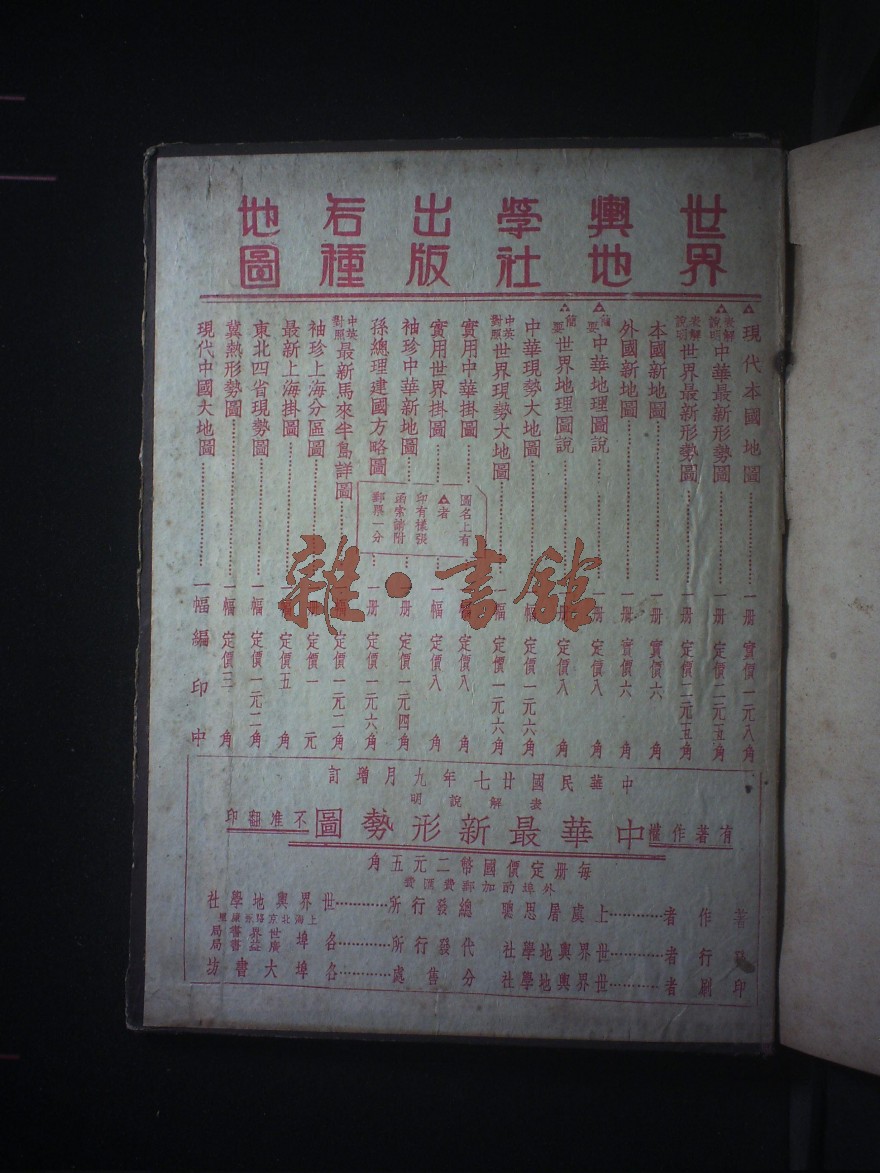 世界輿地學社出版各種地圖
▲現代本國地圖……一册 實價一元八角
▲表解說明中華最新形勢圖……一册 定價二元五角
表解說明世界最新形勢圖……一册 定價二元五角
本國新地圖……一册 實價六角
外國新地圖……一册 實價六角
▲簡要中華地理圖說……一册 定價八角
▲簡要世界地理圖說……一册 定價八角
中華現勢大地圖……一幅 定價一元六角
中英對照世界現勢大地圖……一幅 定價一元六角
實用中華掛圖……一幅 定價八角
實用世界掛圖……一幅 定價八角
袖珍中華新地圖……一册 定價一元四角
孫總理建國方略圖……一册 定價一元六角
中英對照最新馬來半島詳圖……一幅 定價一元二角
袖珍上海分區圖……一册 定價一元
最新上海掛圖……一幅 定價五角
東北四省現勢圖……一幅 定價一元二角
冀熱形勢圖……一幅 定價三角
現代中國大地圖……一幅編印中
圖名上有
▲者
印有樣張
函索請附
郵票一分
雜·書館
中華民國廿七年九月增訂
表解說明
有著作權 中華最新形勢圖 不准翻印
每册定價國幣二元五角
外埠酌加郵費匯費
著作者……上虞屠思聰
行者……世界輿地學社
印刷者……世界輿地學社
總發行所……世界輿地學社
上海北京路
代發行所……各埠 世界書局 廣益書局
分售處……各埠大書坊